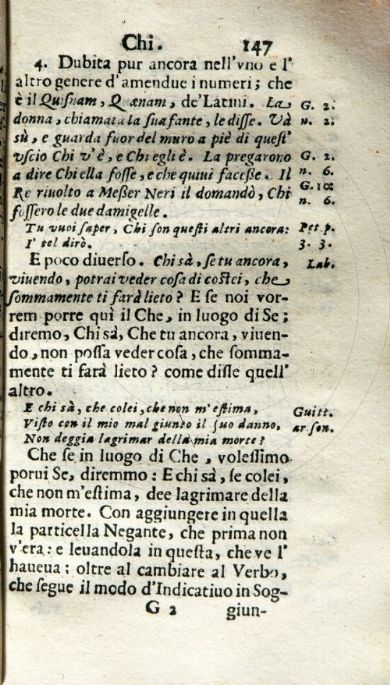 Chi. 147
4. Dubita pur ancora nell'vno e l'
altro genere d'amendue i numeri; che
è il Quisnam, Quænam, de'Latini. La G. 2.
donna, chiamata la sua fante, le disse. Và n. 2.
sù, e guarda fuor del muro a piè di quest'
vscio Chi v'è, e Chi egli è. La pregarono G. 2.
a dire Chi ella fosse, e che quiui facesse. Il n. 6.
Re riuolto a Messer Neri il domandò, Chi G. 10.
fossero le due damigelle. n. 6.
Tu vuoi saper, Chi son questi altri ancora: Pet. p.
I' tel dirò. 3. 3.
E poco diuerso. Chi sà, se tu ancora, Lab.
viuendo, potrai veder cosa di costei, che
sommamente ti farà lieto? E se noi vor-
rem porre quì il Che, in luogo di Se;
diremo, Chi sà, Che tu ancora, viuen-
do, non possa veder cosa, che somma-
mente ti farà lieto? come disse quell'
altro.
E chi sà, che colei, che non m'estima, Guitt.
Visto con il mio mal giunto il suo danno, ar. son.
Non deggia lagrimar della mia morte?
Che se in luogo di Che, volessimo
porui Se, diremmo: E chi sà, se colei,
che non m'estima, dee lagrimare della
mia morte. Con aggiungere in quella
la particella Negante, che prima non
v'era: e leuandola in questa, che ve l'
haueua; oltre al cambiare al Verbo,
che segue il modo d'Indicatiuo in Sog-
G 2 giun-